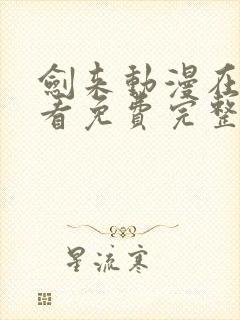 劍来動漫在
看免費完整
星流寒